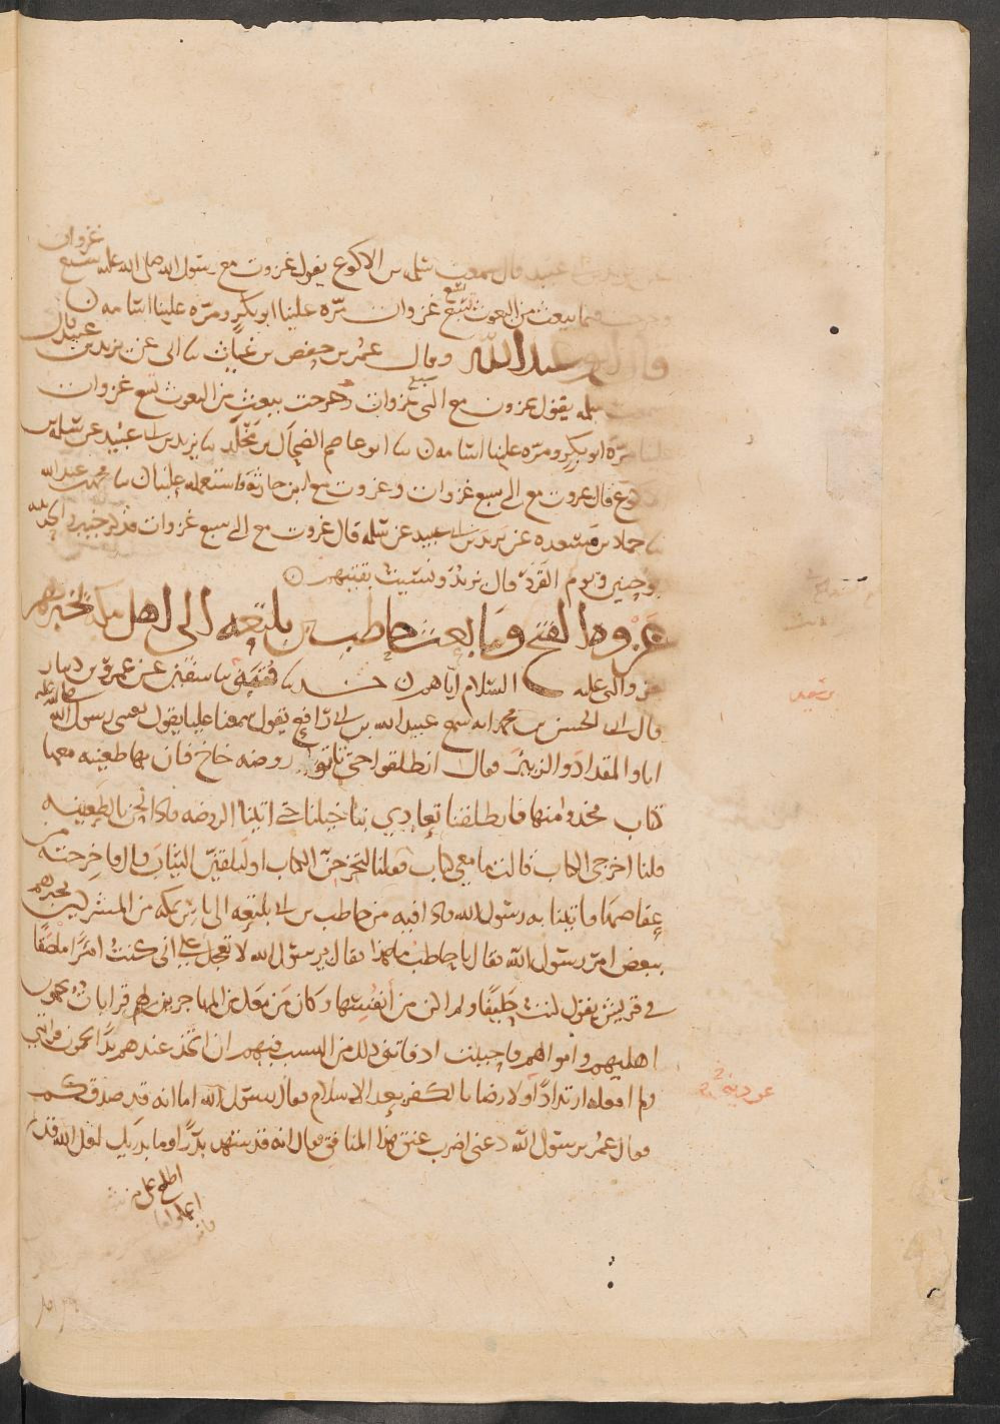 عبيد قال سمعت سلمه بن الاكوع يقول غزوت مع رسول الله صلى الله عليه سبع غزوات
وخرجت فيما يبعث من البعوث تسع غزوات مره علينا ابو بكر ومره علينا اسامه
قال ابو عبد الله وقال عمر بن حفص بن غياث ثنا ابى عن يزيد بن عبيد قال
سمعت سلمه يقول غزوت مع النبى سبع غزوات وخرجت فيما يبعث من البعوث تسع غزوات
علينا مره ابو بكر ومره علينا اسامه ثنا ابو عاصم الضحاك بن مخلد ثنا يزيد بن ابى عبيد عن سلمه بن
الاكوع قال غزوت مع النبى سبع غزوات وغزوت مع ابن حارثة فاستعمله علينا ثنا محمد بن عبد الله
ثنا حماد بن مسعده عن يزيد بن ابى عبيد عن سلمه قال غزوت مع النبى سبع غزوات فذكر خيبر والحديبيه
ويوم حنين ويوم القرد قال يزيد ونسيت بقيتهم
غزوه الفتح وما بعث حاطب بن بلتعه الى اهل مكه يخبرهم
بغزو النبى عليه السلام اياهم ثنا قتيبه ثنا سفين عن عمرو بن دينار
قال انا الحسن بن محمد انه سمع عبيد الله بن ابى رافع يقول سمعت عليا يقول بعثنى رسول الله صلى الله عليه
انا والمقداد والزبير فقال انطلقوا حتى تاتوا روضه خاخ فان بها ظعينه معها
كتاب فخذوه منها فانطلقنا تعادي بنا خيلنا حتى اتينا الروضه فاذا نحن بالظعينه
قلنا اخرجى الكتاب قالت ما معى كتاب فقلنا لتخرجن الكتاب او لنلقين الثياب قال فاخرجته من
عقاصها فاتينا به رسول الله فاذا فيه من حاطب بن ابى بلتعه الى ناس بمكه من المشركين يخبرهم
ببعض امر رسول الله فقال يا حاطب ما هذا فقال يرسول الله لا تعجل على انى كنت امرا ملصقا
فى قريش يقول كنت حليفا ولم اكن من انفسها وكان من معك من المهاجرين لهم قرابات يحمون
اهليهم واموالهم فاحببت اد فاتنى ذلك من النسب فيهم ان اتخذ عندهم يدا يحمون قرابتى
ولم افعله ارتدادا ولا رضا بالكفر بعد الاسلام فقال رسول الله اما انه قد صدقكم
فقال عمر يرسول الله دعنى اضرب عنق هذا المنافق فقال انه قد شهد بدرا وما يدريك لعل الله قد
اطلع على من
اعملوا ما